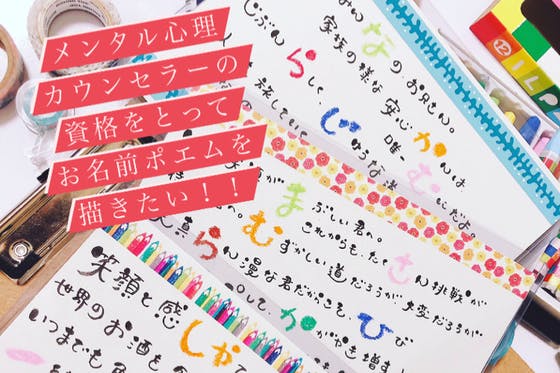 メンタル心理
カウンセラーの
資格をとって
お名前ポエムを
描きたい！！
なの、お兄さん。
家族の様な安心かんは
じぶんらしく、唯一
旅していて
じゆうな
まぶしい君へ。
これからも、たくさん挑戦が
むずかしい道だろうが 大変だろうが
真らん漫な君だからこそ、
がやき増す！
笑顔と感
世界のお酒も
いつまでも
12